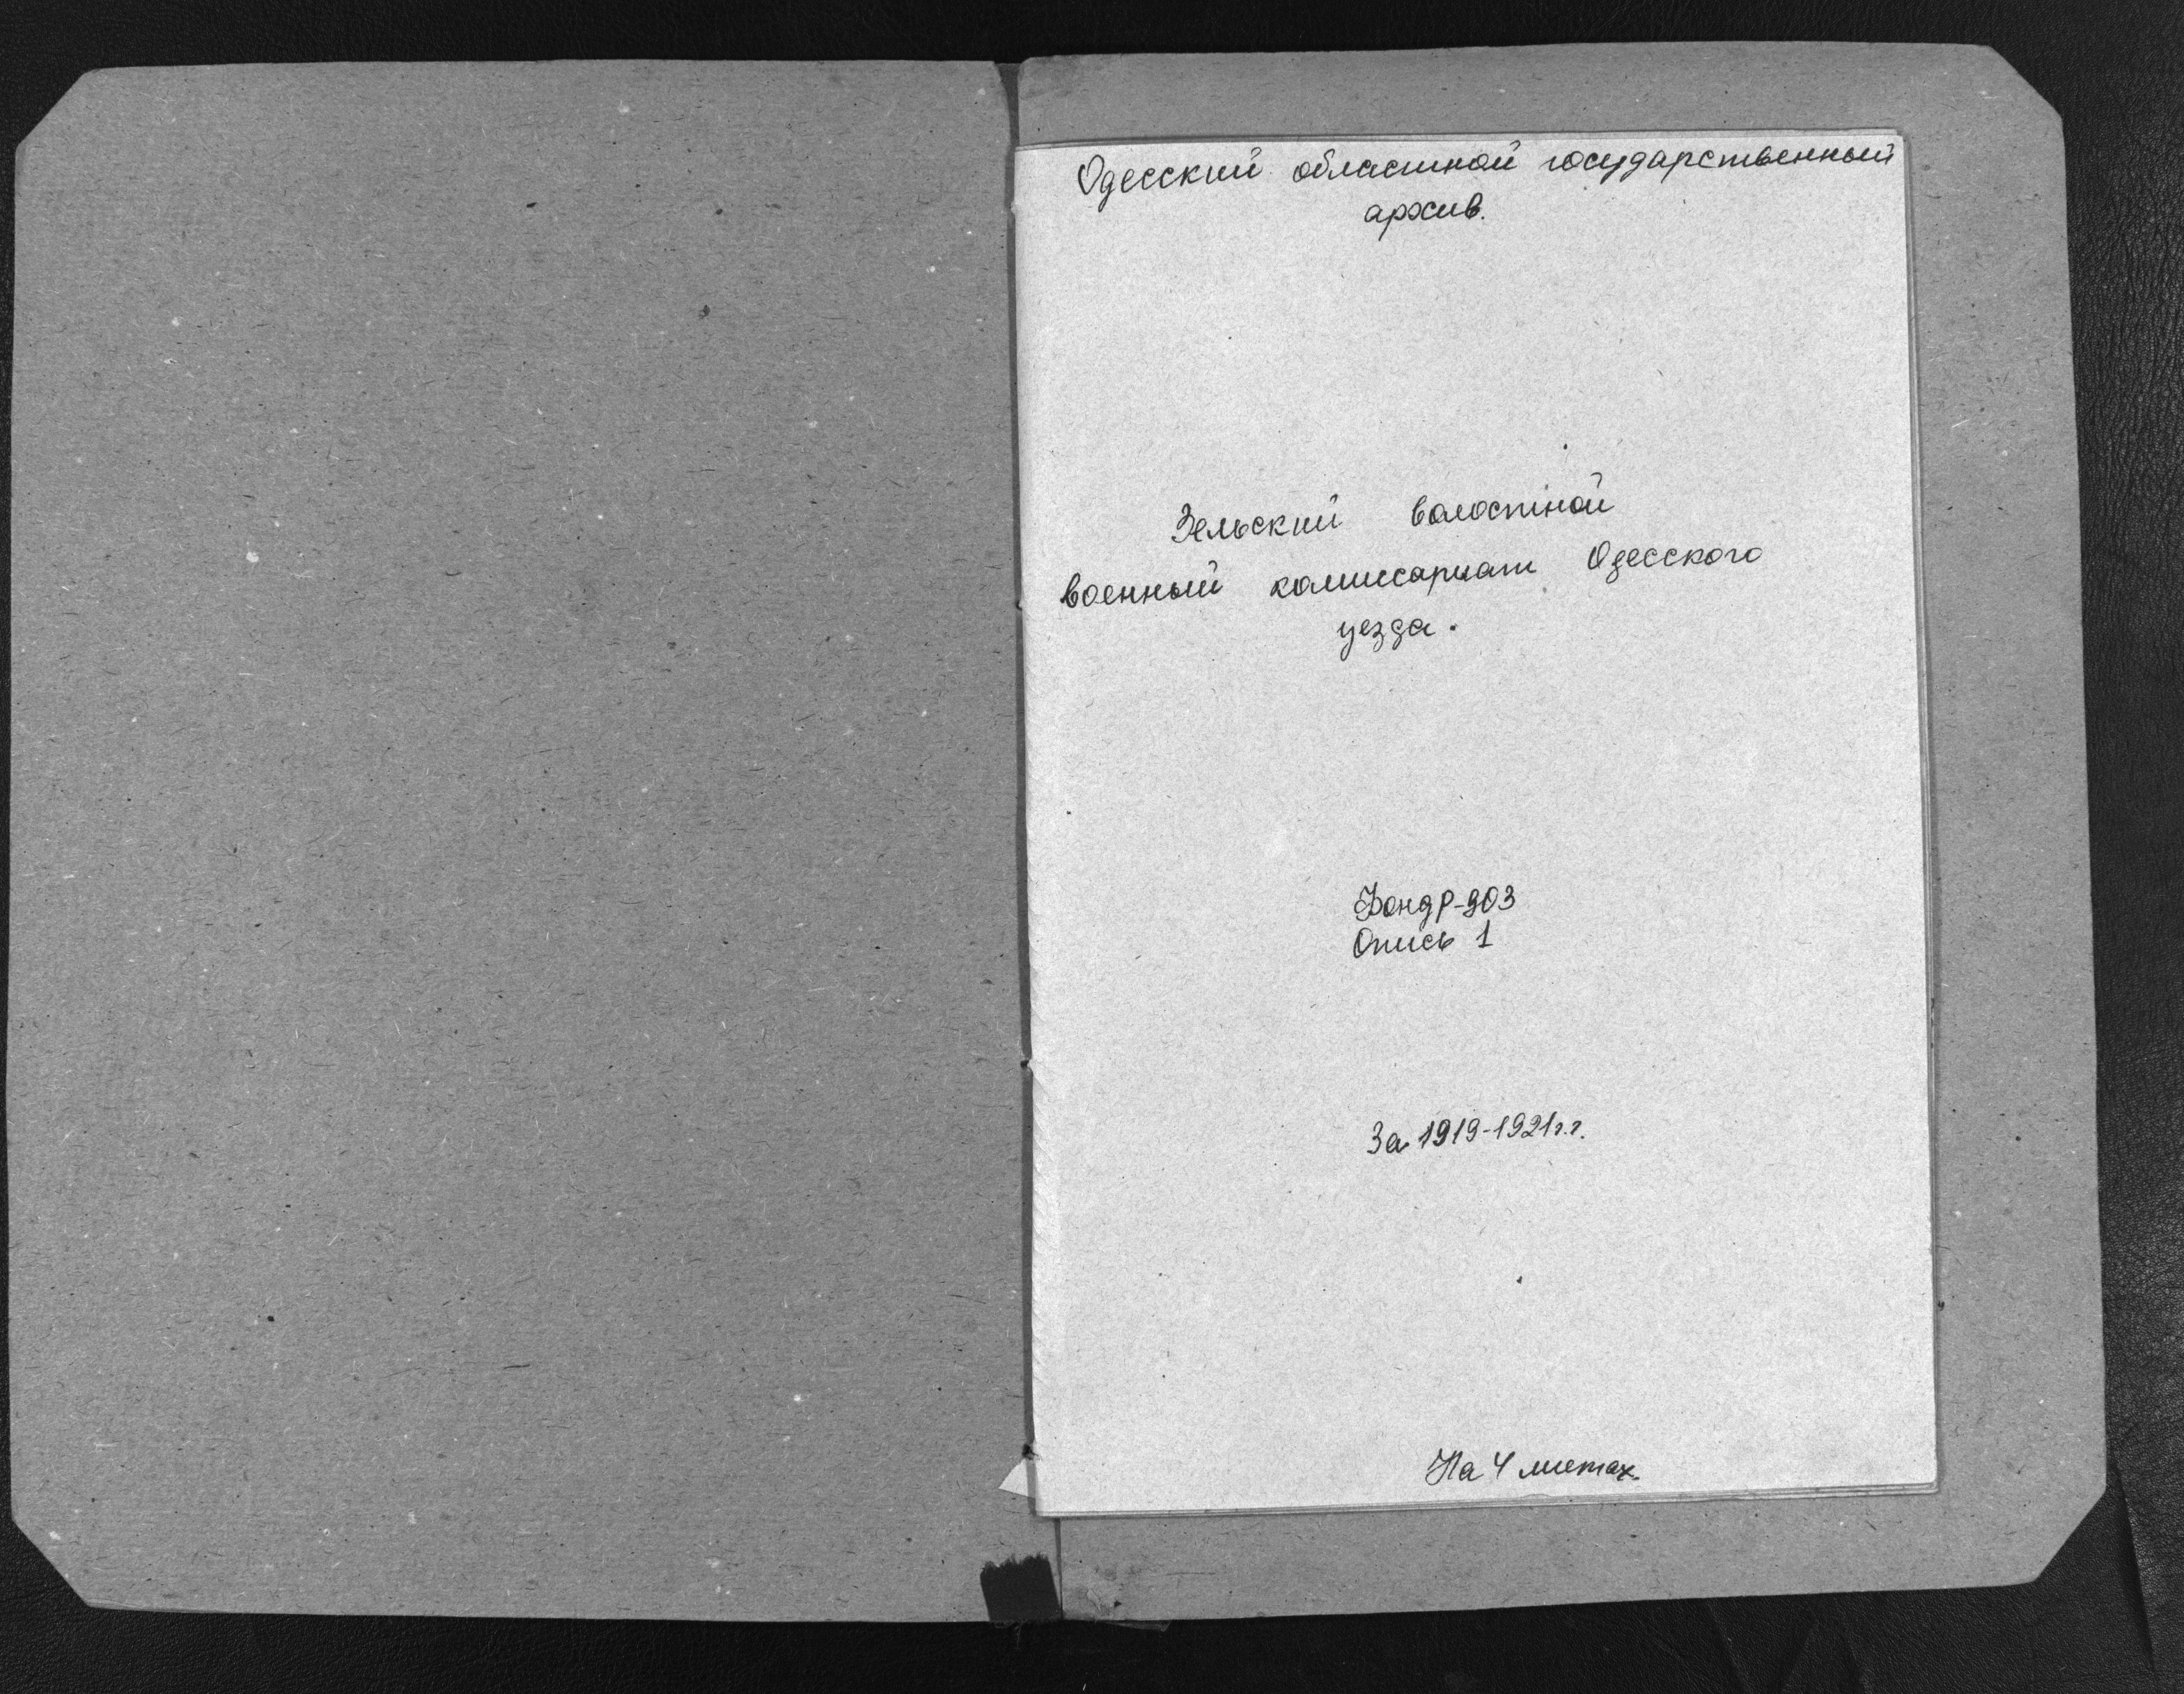 Одесский областной государственный
архив.
Зельский волостной
военный комиссариат Одесского
уезда.
Фонд Р-903
Опись 1
За 1919-1921г.г.
На 4 листах.